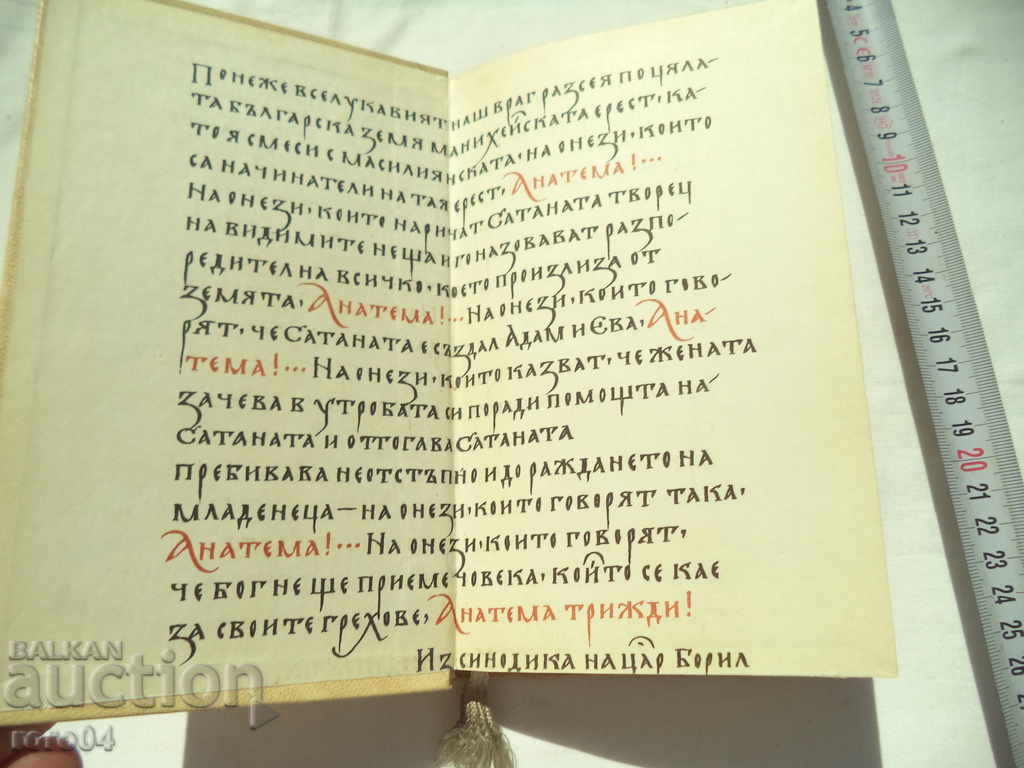 Понеже вселукавият наш враг разсея по цяла-
та българска земя манихейската ерест, ка-
то я смеси с масилиянската, на онези, които
са начинатели на тая ерест, Анатема!...
На онези, които наричат Сатаната творец
на видимите неща и го назовават разпо-
редител на всичко, което произлиза от
земята, Анатема!... На онези, които гово-
рят, че Сатаната е създал Адам и Ева, Ана-
тема!... На онези, които казват, че жената
зачева в утробата си поради помощта на-
Сатаната и оттогава Сатаната
пребивава неотстъпно и до раждането на
младенеца — на онези, които говорят така,
Анатема!... На онези, които говорят,
че бог не ще приеме човека, който се кае
за своите грехове, Анатема трижди!
Из синодика на цар Борил
BALKAN
auction
roro04
4
5
6
7
8
9
10
11
12
13
14
15
16
17
18
19
20
21
22
23
24
25
26